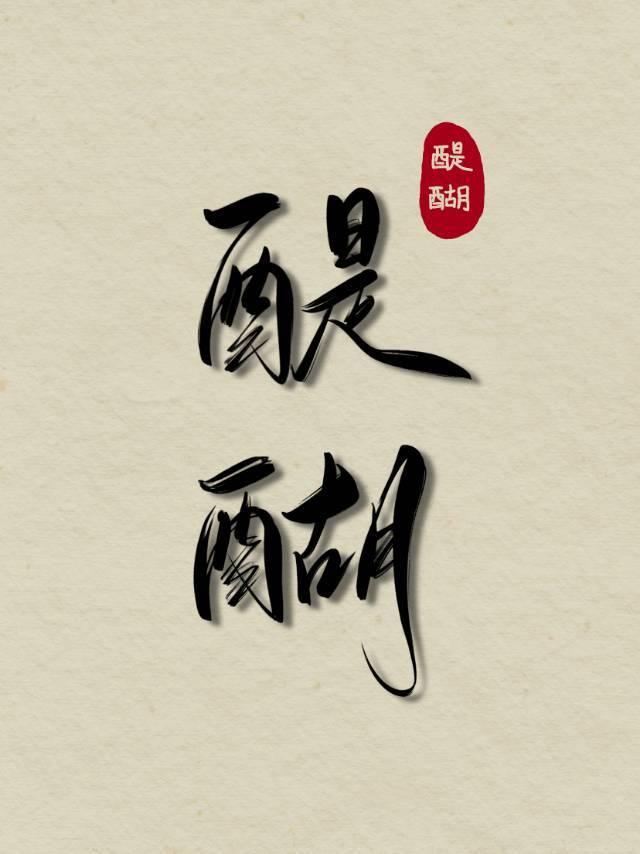 醍
醐
醍
醐